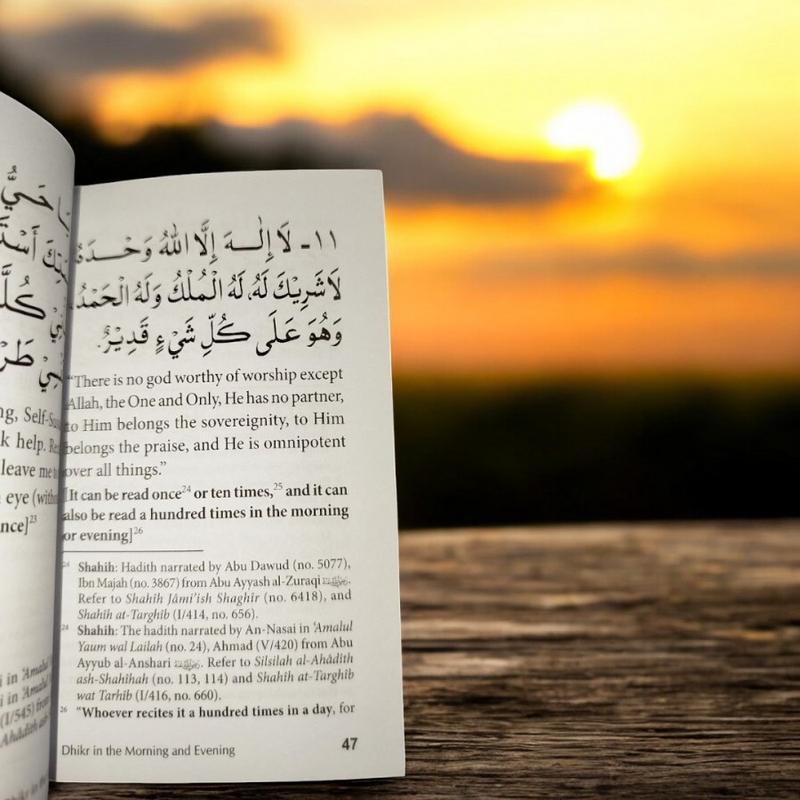 حَيُّ
أَسْتَ
كُلَّ
طَرْ
ng, Self-Su
k help. Re
leave me
eye (with
nce]23
i in 'Amalul
i in 'Amalul
(I/545) from
Ahâdith ash
١١- لَا إِلٰـهَ إِلَّا اللهُ وَحْـدَهُ
لَا شَرِيْكَ لَهُ، لَهُ الْمُلْكُ وَلَهُ الْحَمْدُ
وَهُوَ عَلَى كُلِّ شَيْءٍ قَدِيْرٌ.
"There is no god worthy of worship except
Allah, the One and Only, He has no partner,
to Him belongs the sovereignty, to Him
belongs the praise, and He is omnipotent
over all things."
[It can be read once24 or ten times,25 and it can
also be read a hundred times in the morning
or evening]26
24 Shahih: Hadith narrated by Abu Dawud (no. 5077),
Ibn Majah (no. 3867) from Abu Ayyash al-Zuraqi
Refer to Shahih Jâmi'ish Shaghîr (no. 6418), and
Shahih at-Targhib (I/414, no. 656).
24 Shahih: The hadith narrated by An-Nasai in 'Amalul
Yaum wal Lailah (no. 24), Ahmad (V/420) from Abu
Ayyub al-Anshari . Refer to Silsilah al-Ahâdith
ash-Shahihah (no. 113, 114) and Shahih at-Targhib
wat Tarhib (I/416, no. 660).
26 "Whoever recites it a hundred times in a day, for
Dhikr in the Morning and Evening 47